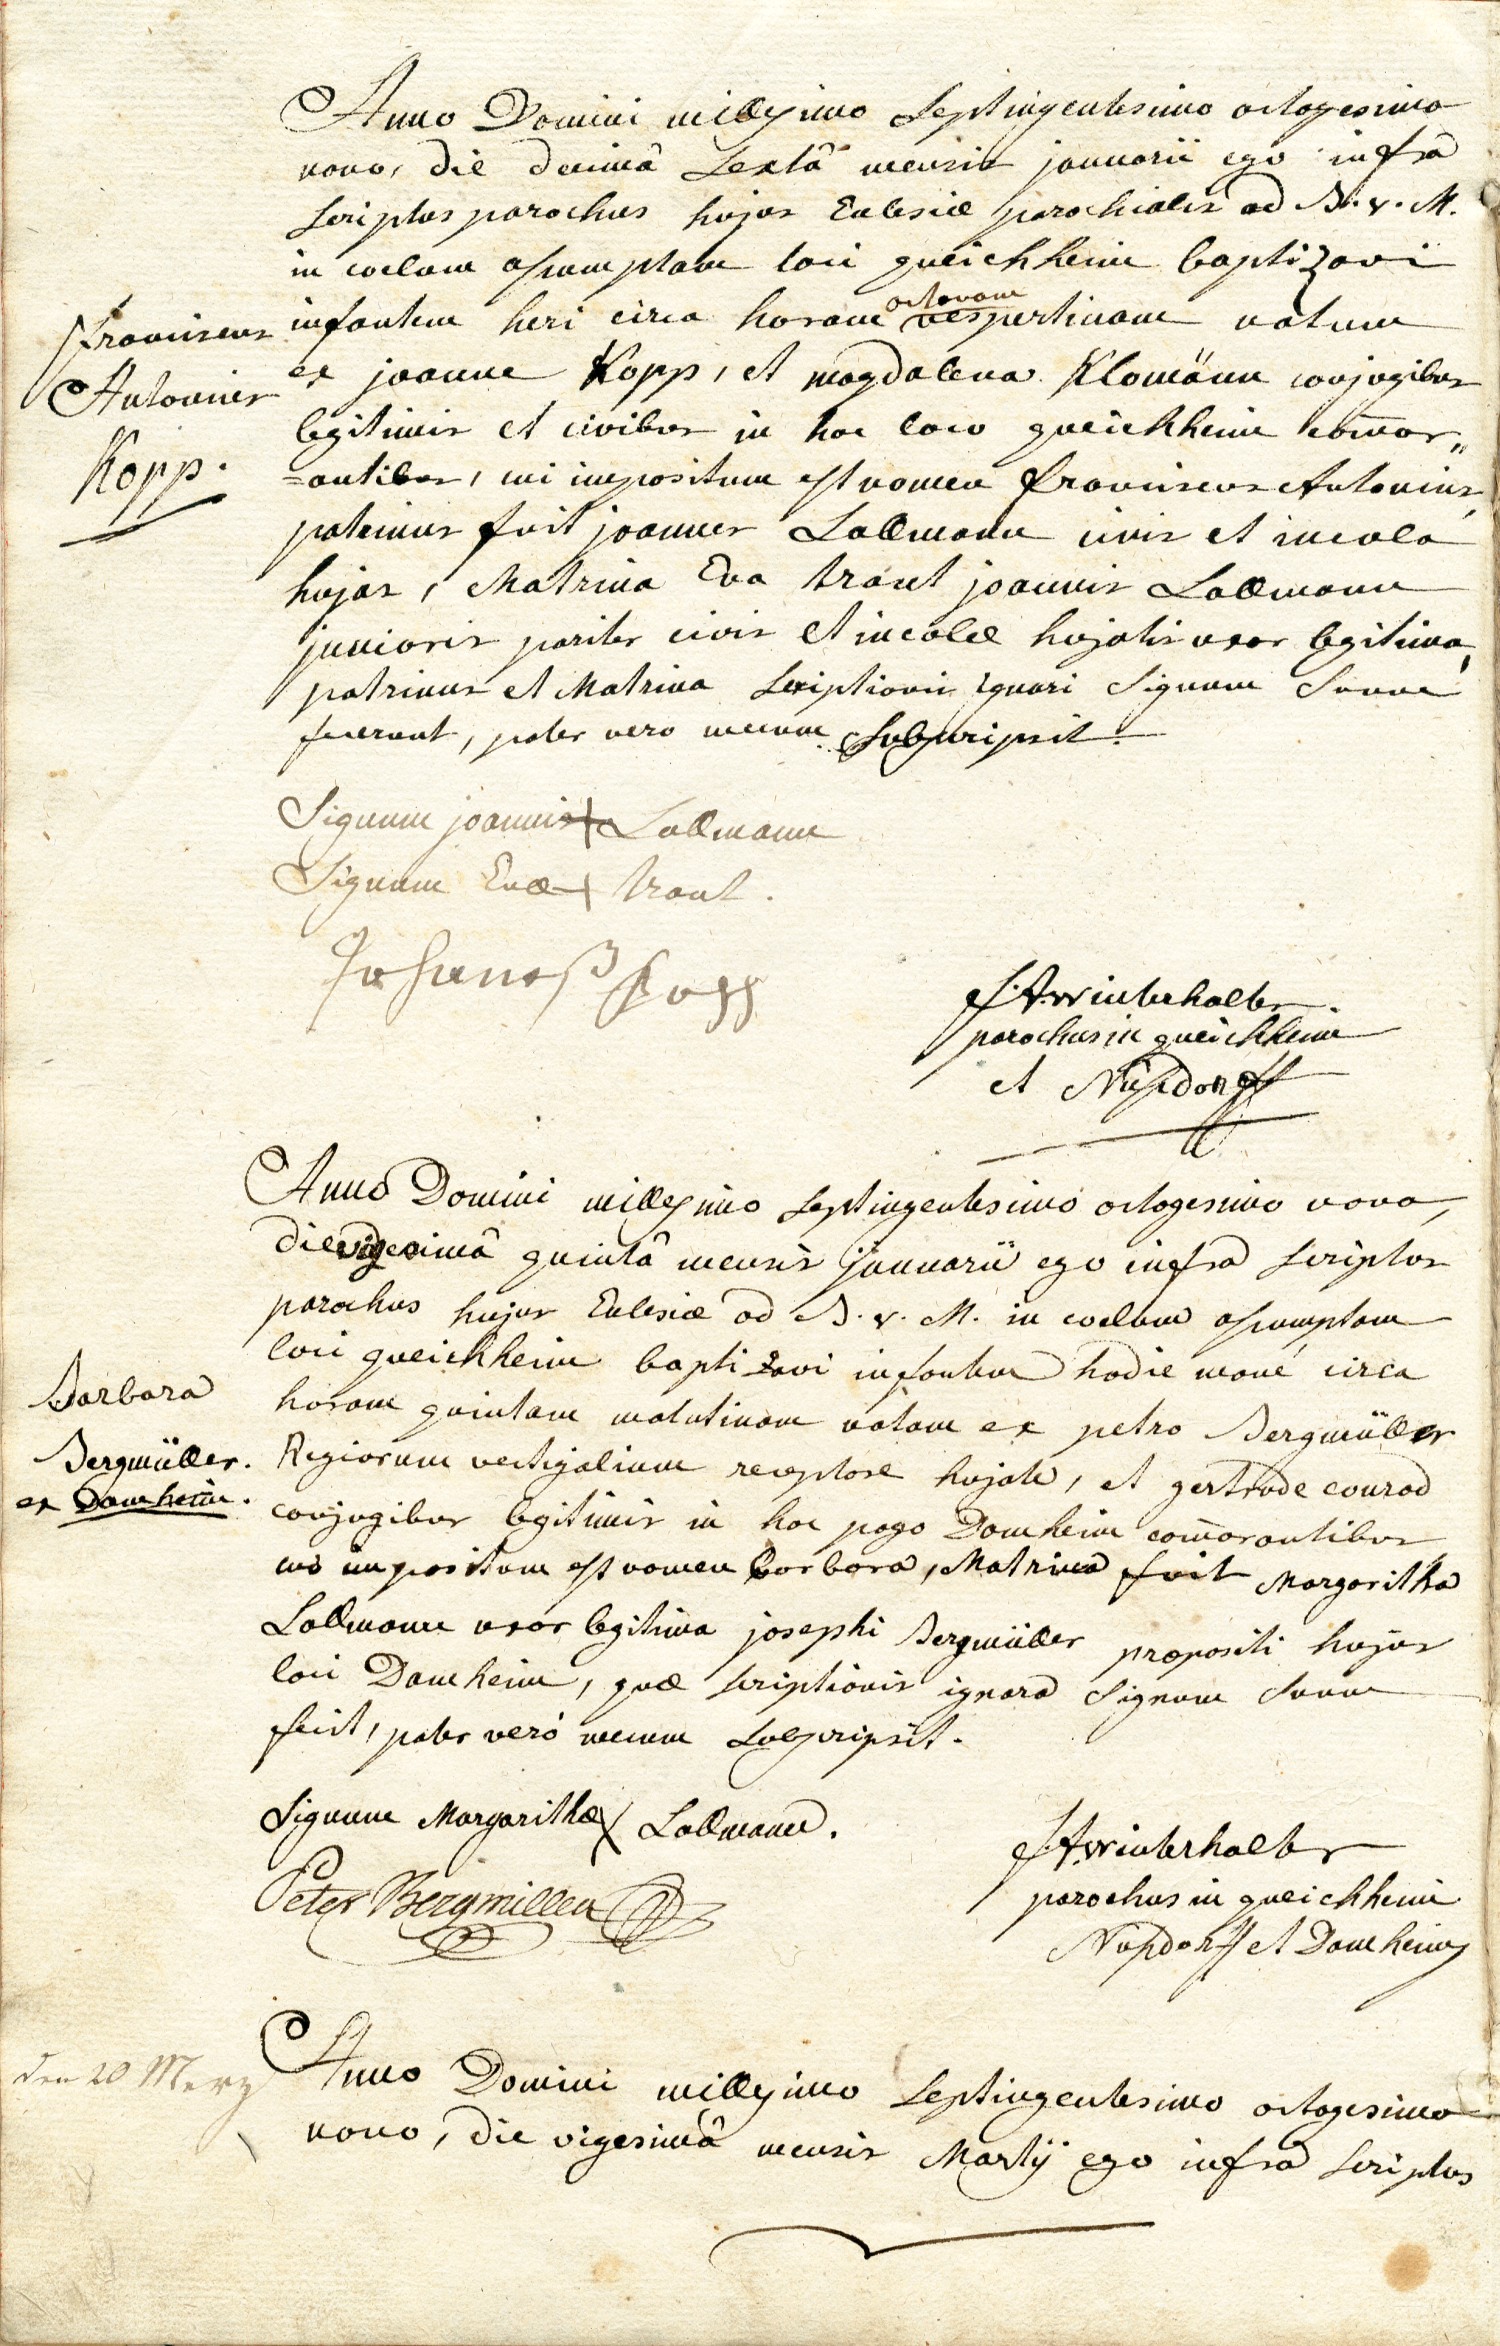 Anno Domini millesimo septingentesimo octogesimo
nono, die decimâ sextâ mensis januarii ego infrâ
scriptus parochus hujus Ecclesiæ parochialis ad B. v. M.
in coelum assumptam loci queichheim baptizavi
Franciscus
Antonius
Kopp.
infantem heri circa horam octavam vespertinam natum
ex joanne Kopp, et magdalena Klomänn conjugibus
legitimis et civibus in hoc loco queichheim com̄or„
=antibus, cui impositum est nomen franciscus Antonius,
patrinus fuit joannes Lallmann civis et incola
hujas, Matrina Eva traut joannis Lallmann
junioris pariter civis et incolæ hujatis uxor legitima,
patrinus et Matrina scriptionis ignari signum suum
fecerunt, pater vero mecum subscripsit.
Signum joannis + Lallmann
Signum Evæ + traut.
Johaneß Kopp
F.A. winterhalter
parochus in queichheim
et Nusdorff
Anno Domini millesimo septingentesimo octogesimo nono,
die vigesimâ quintâ mensis januarii ego infra scriptus
parochus hujus Ecclesiæ ad B. v. M. in coelum assumptam
loci queichheim baptizavi infantem hodie mane circa
Barbara
Bergmüller.
ex Damheim.
horam quintam matutinam natam ex petro Bergmüller
Regiorum vectigalium receptore hujate, et gertrude conrad
conjugibus legitimis in hoc pago Damheim com̄orantibus
cui impositum est nomen barbara, Matrina fuit Margaritha
Lallmann uxor legitima josephi Bergmüller præpositi hujus
loci Damheim, quæ scriptionis ignara signum suum
fecit, pater verò mecum subscripsit.
Signum Margarithæ X Lallmann.
Peter Bergmiller
F.A. winterhalter
parochus in queichheim
Nusdorff et Damheim
den 20 Merz
Anno Domini millesimo septingentesimo octogesimo
nono, die vigesimâ mensis Martij ego infra scriptus